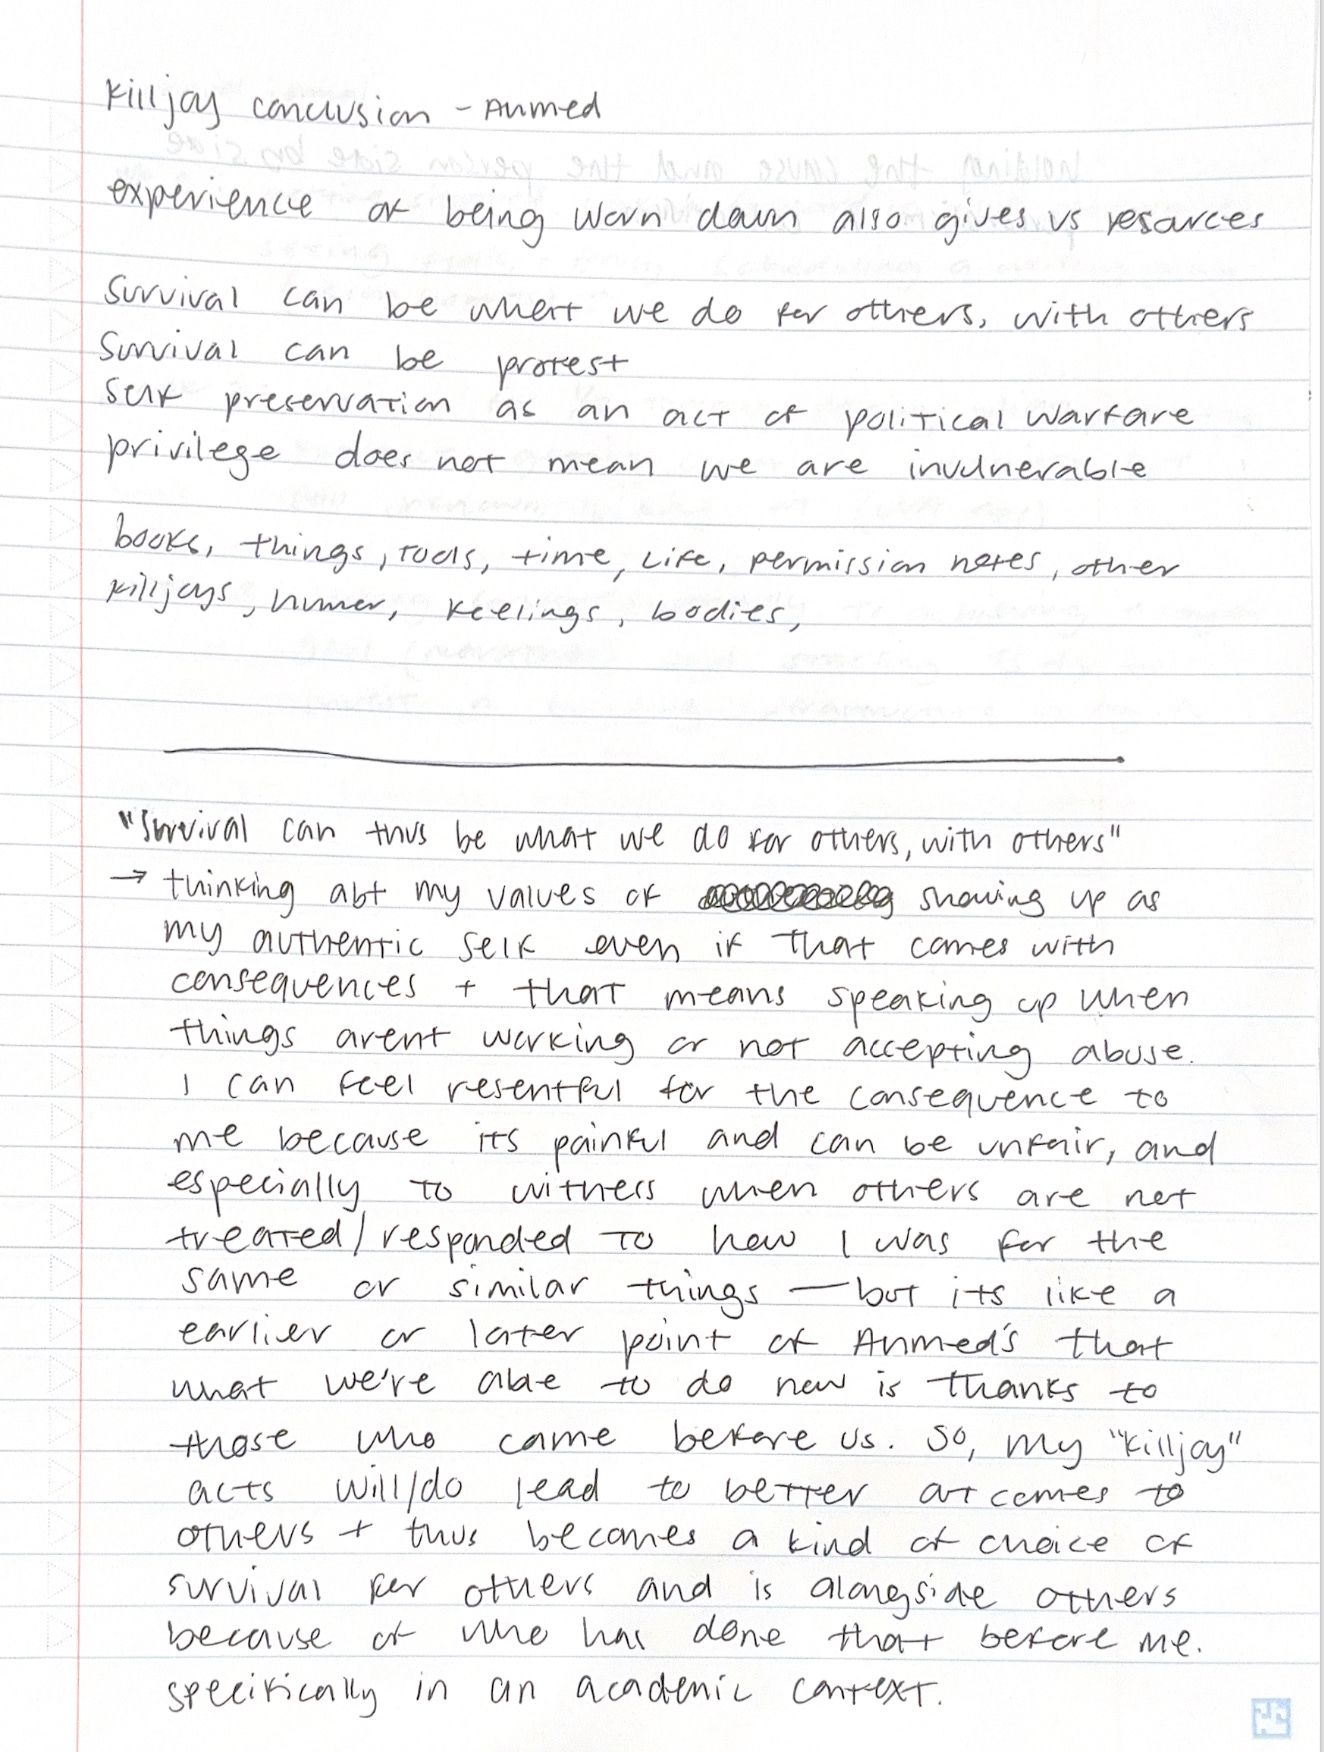 Killjoy conclusion - Ahmed
experience of being worn down also gives us resources
Survival can be what we do for others, with others
Survival can be protest
Self preservation as an act of political warfare
privilege does not mean we are invulnerable
books, things, tools, time, life, permission notes, other
killjoys, humor, feelings, bodies,
"Survival can thus be what we do for others, with others"
→ thinking abt my values of showing up as
my authentic self even if that comes with
consequences + that means speaking up when
things arent working or not accepting abuse.
I can feel resentful for the consequence to
me because its painful and can be unfair, and
especially to witness when others are not
treated/responded to how I was for the
same or similar things — but its like a
earlier or later point of Ahmed's that
what we're able to do now is thanks to
those who came before us. So, my "killjoy"
acts will/do lead to better outcomes to
others + thus becomes a kind of choice of
survival for others and is alongside others
because of who has done that before me.
specifically in an academic context.